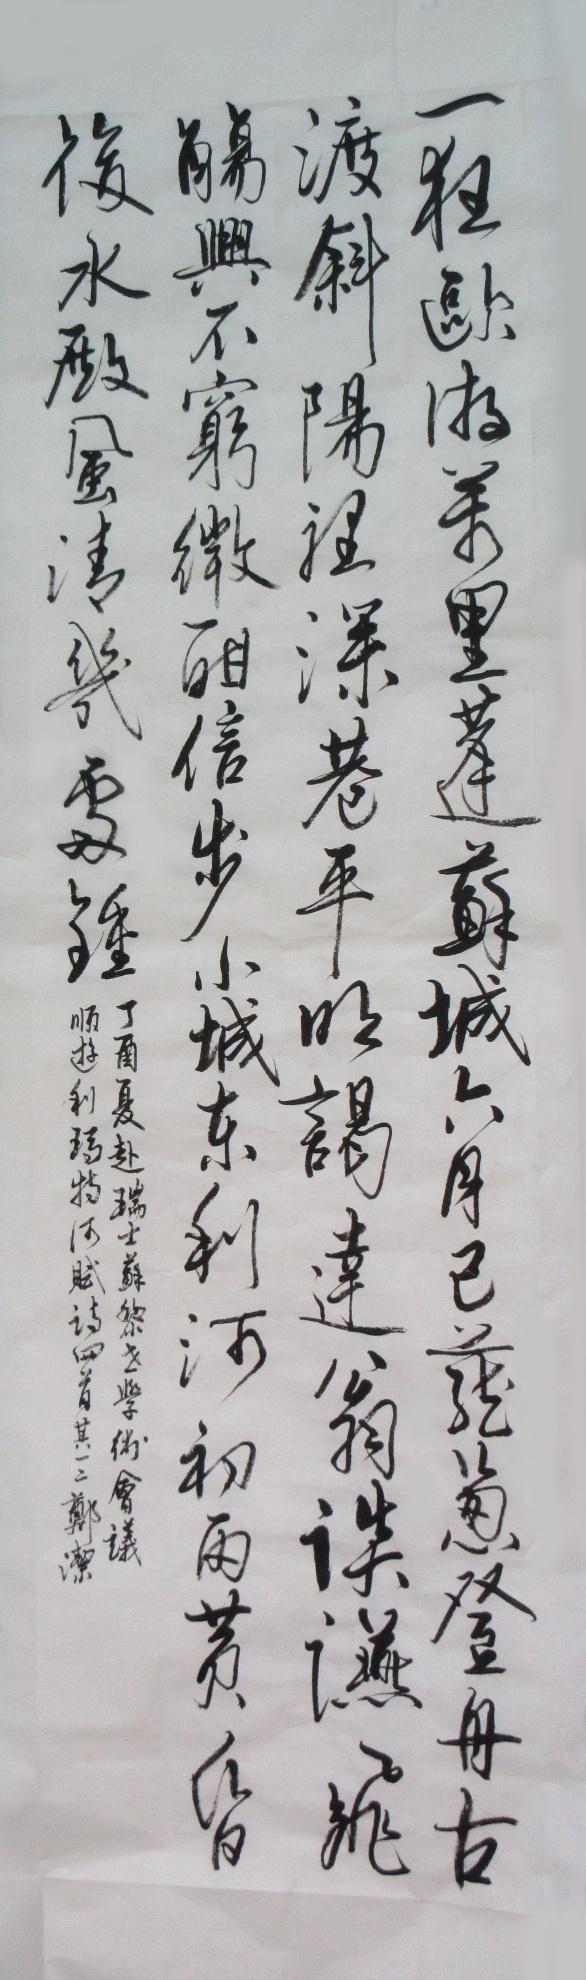 一狂歐游万里蓬蘇城六月已蘢蔥登舟古
渡斜陽裡深巷平明謁達翁誤讌飛
觴興不窮微酣信步小城东利河初雨黄昏
後水殿風清幾處鍾
丁酉夏赴瑞士蘇黎世學術會議
順遊利瑪特河賦詩四首其一二鄭潔